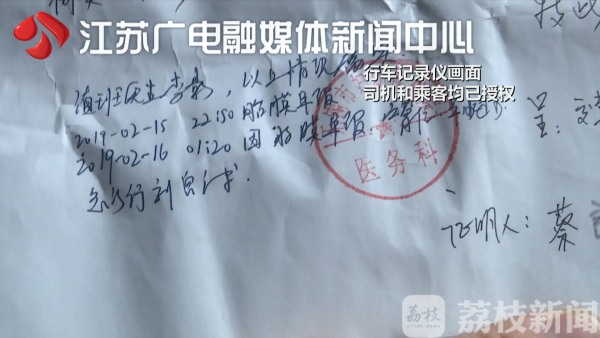 江苏广电融媒体新闻中心
行车记录仪画面
司机和乘客均已授权
值班医生李影，以上情况属实
2019-02-15 22:50 胎膜早破
2019-02-16 01:20 因胎膜早破、宫
急诊行剖宫产术
医务科
呈：
证明人：蔡
荔枝
荔枝新闻